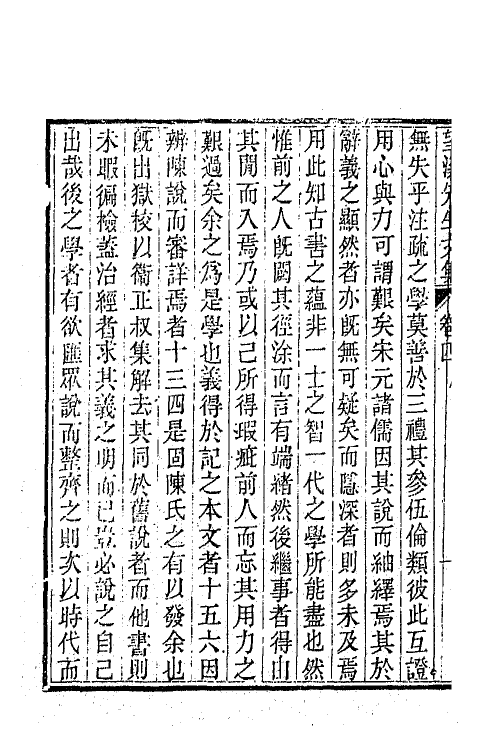 望溪先生文集 卷四
無失乎注疏之學莫善於三禮其參伍倫類彼此互證
用心與力可謂艱矣宋元諸儒因其說而紬繹焉其於
辭義之顯然者亦旣無可疑矣而隱深者則多未及焉
用此知古書之蘊非一士之智一代之學所能盡也然
惟前之人旣闢其徑涂而言有端緒然後繼事者得由
其閒而入焉乃或以己所得瑕疵前人而忘其用力之
艱過矣余之爲是學也義得於記之本文者十五六因
辨陳說而審詳焉者十三四是固陳氏之有以發余也
旣出獄校以衞正叔集解去其同於舊說者而他書則
未暇徧檢蓋治經者求其義之明而已豈必說之自己
出哉後之學者有欲匯眾說而整齊之則次以時代而